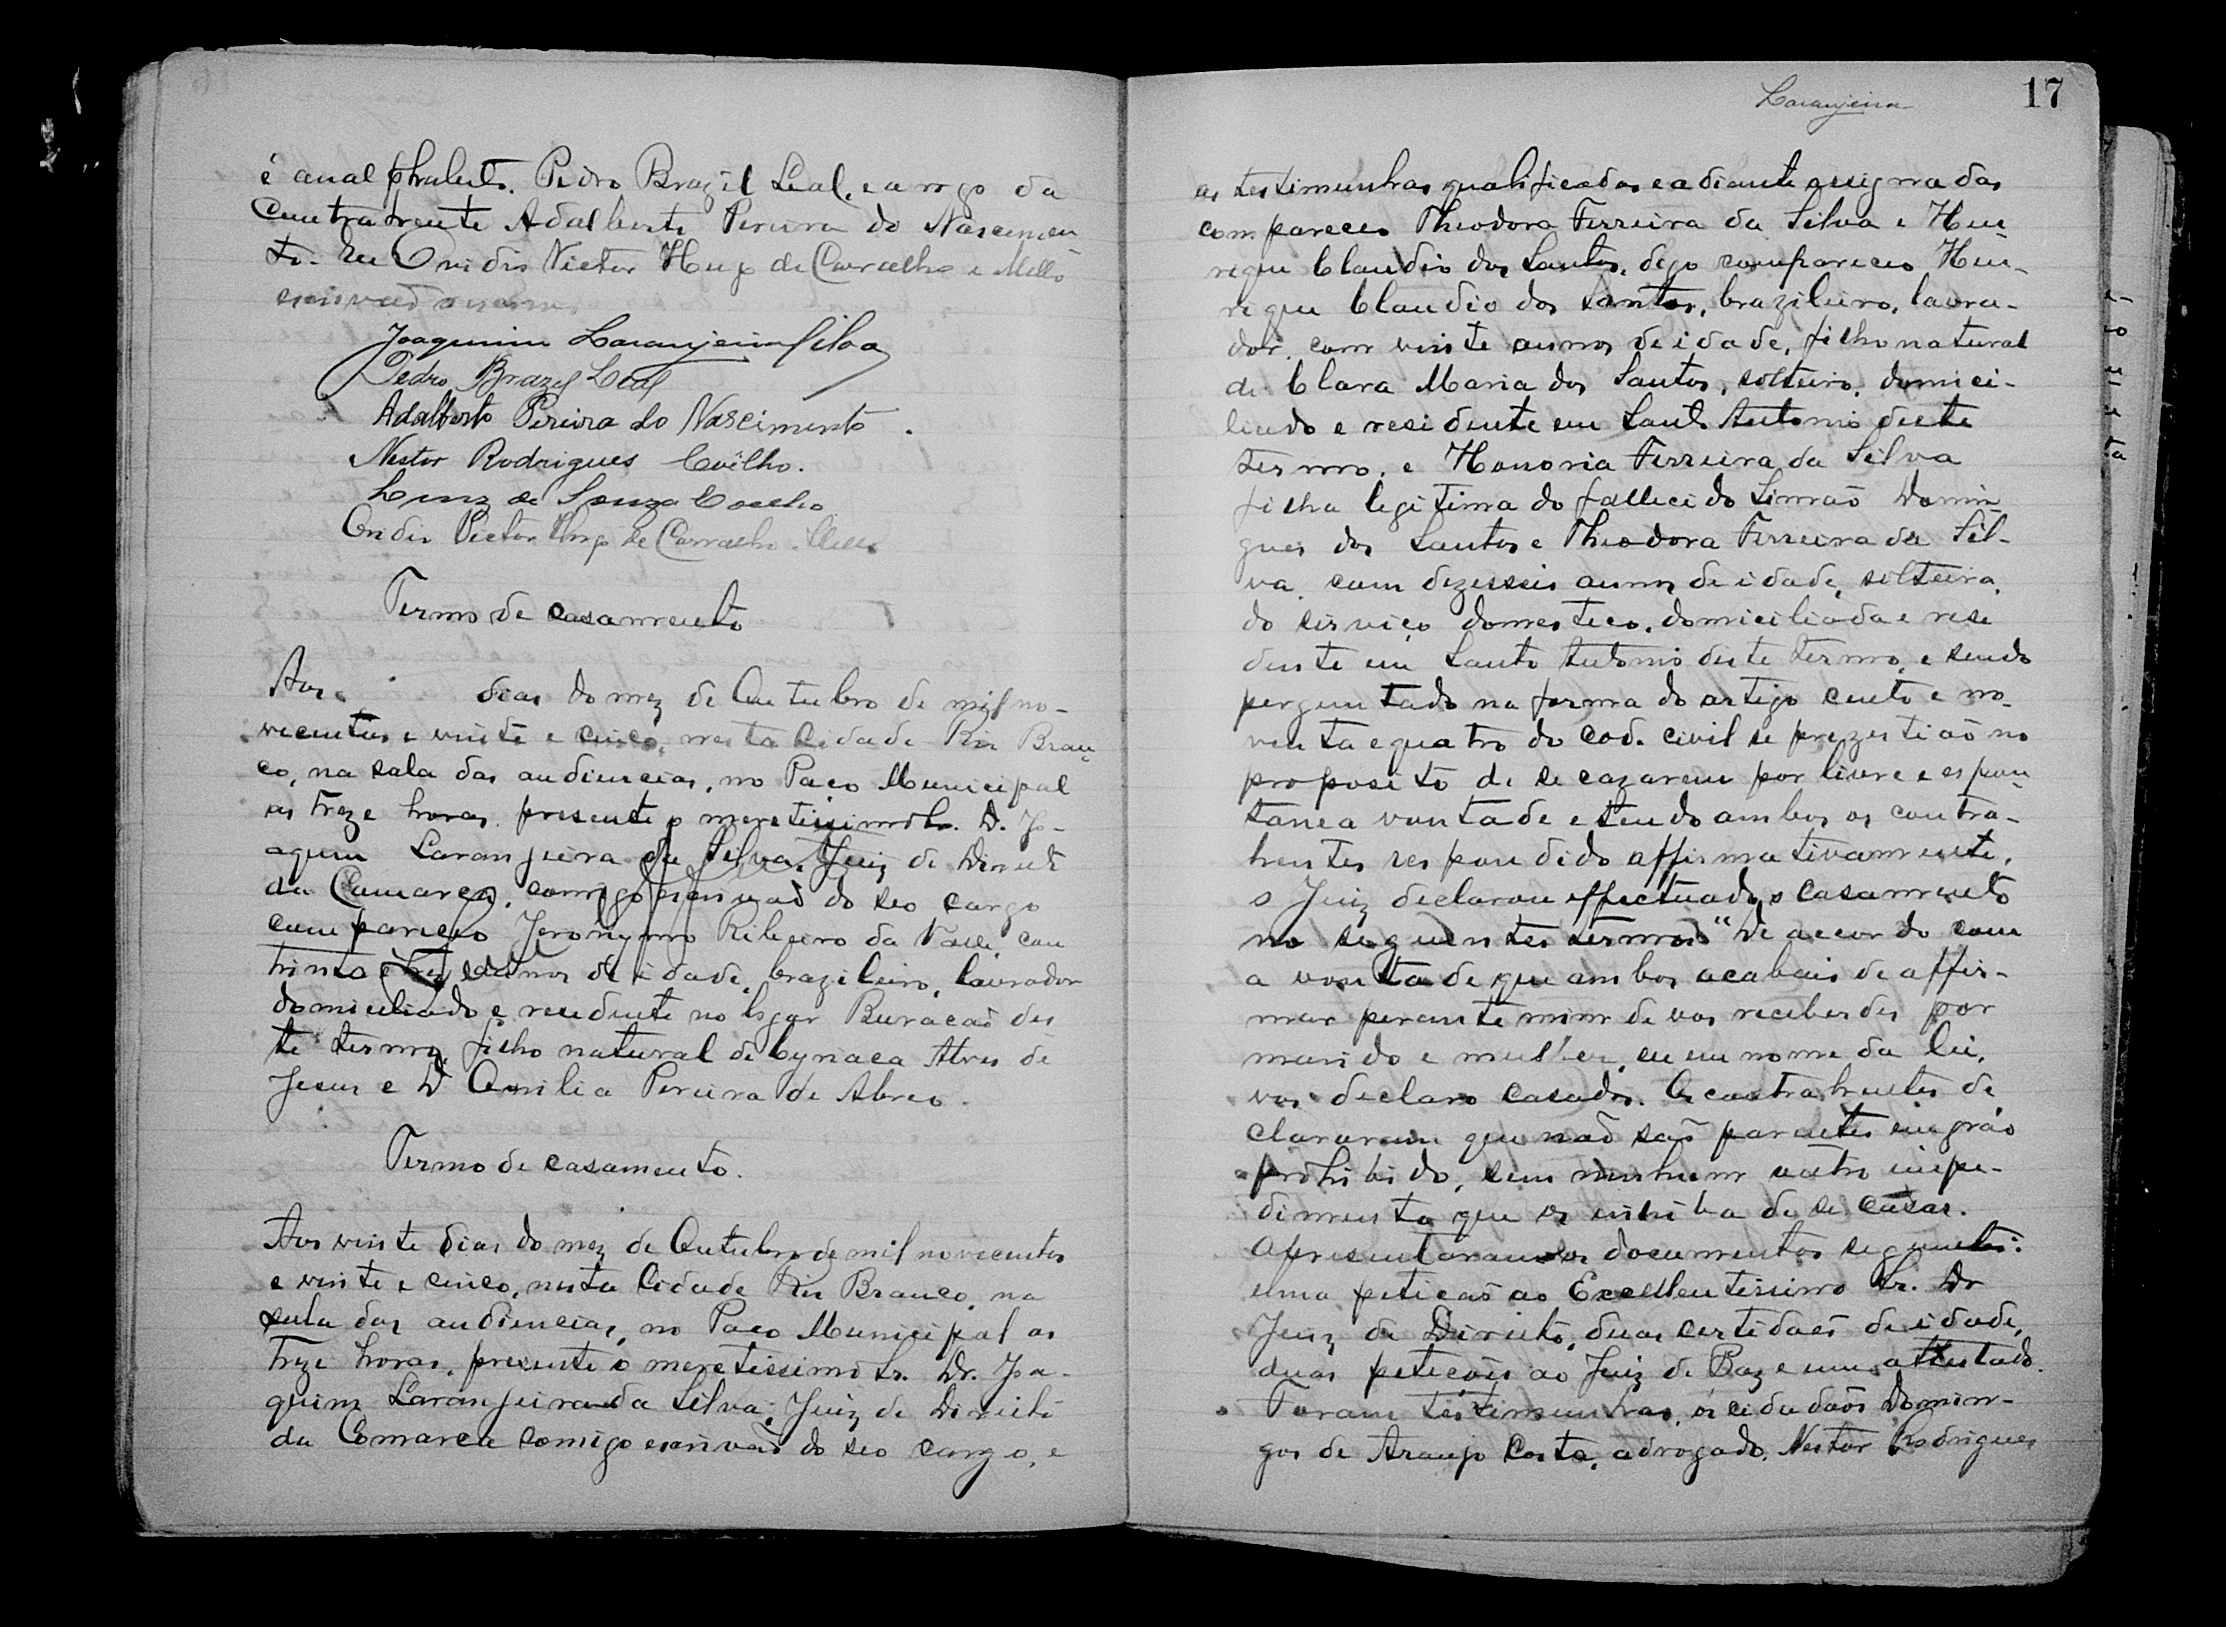 é analphabeto. Pedro Brazil Leal, e a rogo da
contrahente Adalberto Pereira do Nascimen
to. Eu Ovidio Victor Hugo de Carvalho e Mello
escrivaõ
Joaquim Laranjeira Silva
Pedro Brazil Leal
Adalberto Pereira do Nascimento.
Nestor Rodrigues Coêlho.
de Souza Coelho
Ovidio Victor Hugo de Carvalho Mello
Termo de casamento
Aos dias do mez de Outubro de mil no-
vecentos e vinte e cinco, nesta Cidade Rio Bran
co, na sala das audiencias, no Paço Municipal
as treze horas, presente o meretissimo Sr. D. Jo-
aquim Laranjeira da Silva, Juiz de Direito
da Comarca, comigo escrivaõ do seo cargo
compareceo Jeronymo Ribeiro da Valle, com
trinta e tres annos de idade, brazileiro, lavrador
domiciliado e residente no lugar Buracaõ des
te termo, filho natural de Cyriaca Alves de
Jesus e D Amilia Pereira de Abreo.
Termo de casamento.
Aos vinte dias do mez de Outubro de mil novecentos
e vinte e cinco, nesta Cidade Rio Branco, na
sala das audiencias, no Paço Municipal as
treze horas, presente o meretissimo Sr. Dr. Joa-
quim Laranjeira da Silva, Juiz de Direito
da Comarca comigo escrivaõ do seo cargo, e
Laranjeira
17
as testimunhas qualificadas e adiante assignadas
compareceo Theodora Ferreira da Silva e Hen
rique Claudio dos Santos, digo compareceo Hen-
rique Claudio dos Santos, brazileiro, lavra-
dor, com vinte annos de idade, filho natural
de Clara Maria dos Santos, solteiro, domici-
liado e residente em Santo Antonio deste
termo, e Honoria Ferreira da Silva
filha legitima do fallecido Simaõ Domin
gues dos Santos e Theodora Ferreira da Sil-
va, com dezesseis annos de idade, solteira,
do serviço domestico, domiciliada e resi
dente em Santo Antonio deste termo, e sendo
perguntado na forma do artigo cento e no-
venta e quatro do Cod. civil se prezistiaõ no
proposito de se cazarem por livre e espon
tanea vontade e tendo ambos os contra-
hentes respondido affirmativamente,
o Juiz declarou effectuado o casamento
no seguintes termos "De accordo com
a vontade que ambos acabais de affir-
mar perante mim de vos receberdes por
marido e mulher, eu em nome da lei,
vos declaro casados. Os contrahentes de
clararam que naõ saõ parentes em gráo
prohibido, sem nenhum outro impe-
dimento que os inhiba de se casar.
Apresentaram os documentos seguintes:
uma peticaõ ao Excellentissimo Sr. Dr
Juiz de Direito, duas certidaẽs de idade,
duas peticões ao Juiz de Paz e um attestado.
Foram testimunhas, os cidadaõs Domin-
gos de Araujo Costa, advogado, Nestor Rodrigues